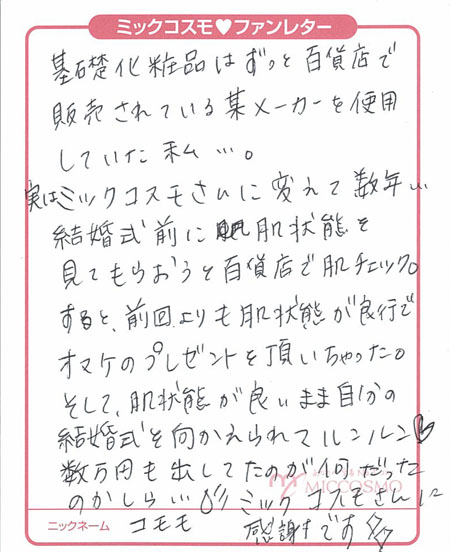 ミックコスモ♥ファンレター
基礎化粧品はずっと百貨店で
販売されている某メーカーを使用
していた私…。
実はミックコスモさんに変えて数年…
結婚式前に肌状態を
見てもらおうと百貨店で肌チェック。
すると、前回よりも肌状態が良行で
オマケのプレゼントを頂いちゃった。
そして、肌状態が良いまま自分の
結婚式を向かえられてルンルン♡
数万円も出してたのが何だった
のかしら… ミックコスモさんに
MICCOSMO
ニックネーム コモモ 感謝です